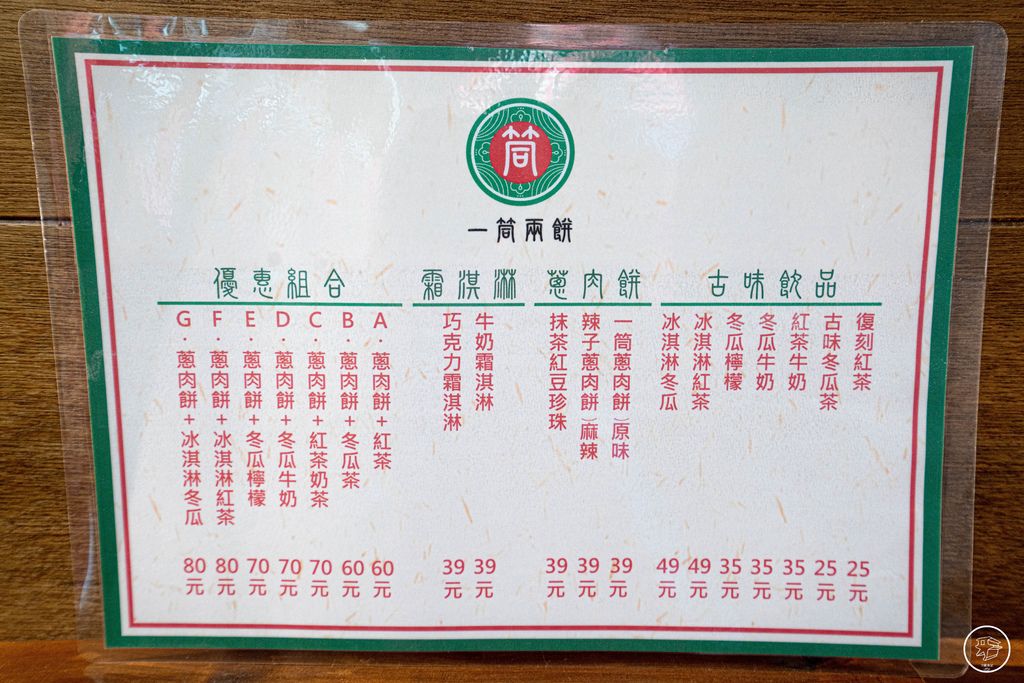 筒
一筒兩餅
古味飲品
復刻紅茶 25元
古味冬瓜茶 25元
紅茶牛奶 35元
冬瓜牛奶 35元
冬瓜檸檬 35元
冰淇淋紅茶 49元
冰淇淋冬瓜 49元
蔥肉餅
一筒蔥肉餅︶原味 39元
辣子蔥肉餅︶麻辣 39元
抹茶紅豆珍珠 39元
霜淇淋
牛奶霜淇淋 39元
巧克力霜淇淋 39元
優惠組合
A·蔥肉餅+紅茶 60元
B·蔥肉餅+冬瓜茶 60元
C·蔥肉餅+紅茶奶茶 70元
D·蔥肉餅+冬瓜牛奶 70元
E·蔥肉餅+冬瓜檸檬 70元
F·蔥肉餅+冰淇淋紅茶 80元
G·蔥肉餅+冰淇淋冬瓜 80元